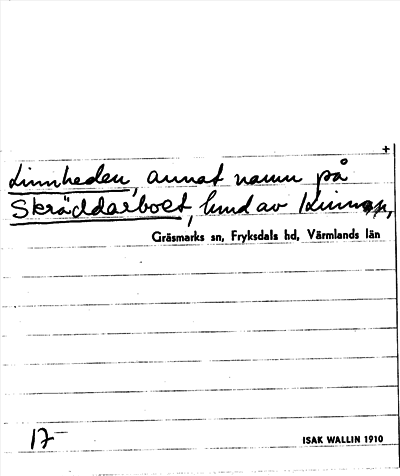 +
Linnheden, annat namn på
Skräddarboet, hmd av
Gräsmarks sn, Fryksdals hd, Värmlands län
17-
ISAK WALLIN 1910